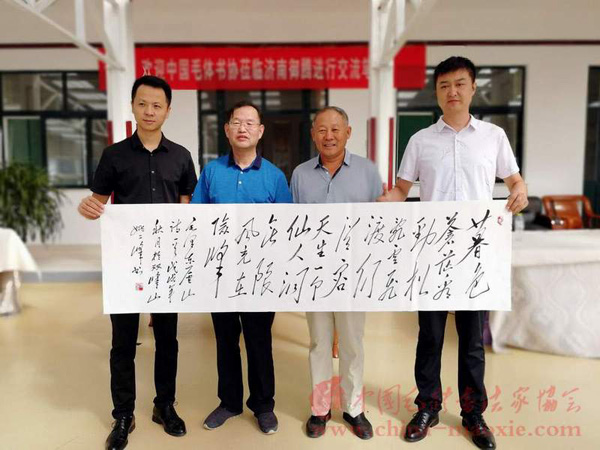 欢迎中国毛体书协莅临济南御腾进行交流
暮色
苍茫看
劲松
乱云飞
渡仍
從容
天生一个
仙人洞
无限
风光在
险峰
毛泽东庐山
中国毛体书法家协会
www.china-maoxie.com